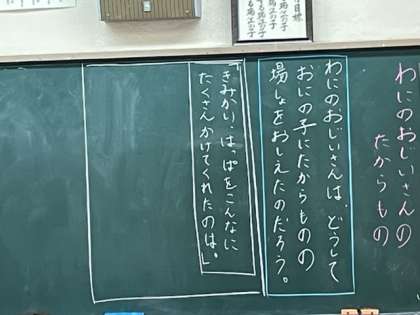 わにのおじいさんの
たからもの
わにのおじいさんは、どうして
おにの子にたからものの
場しょをおしえたのだろう。
「きみかい、はっぱをこんなに
たくさんかけてくれたのは。」